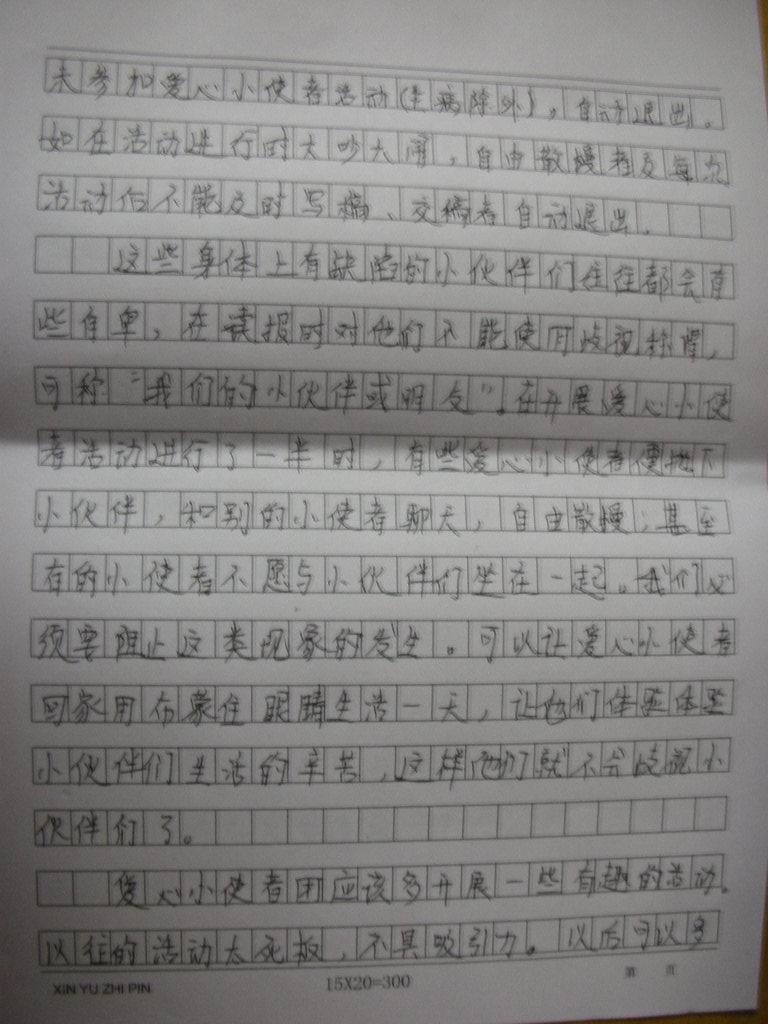 未参加爱心小使者活动（生病除外），自动退出。
如在活动进行时大吵大闹，自由散慢者及每次
活动后不能及时写稿、交稿者自动退出。
这些身体上有缺陷的小伙伴们往往都会有
些自卑，在读报时对他们不能使用歧视称谓，
可称“我们的小伙伴或朋友”。在开展爱心小使
者活动进行了一半时，有些爱心小使者便抛下
小伙伴，和别的小使者聊天，自由散慢；甚至
有的小使者不愿与小伙伴们坐在一起。我们必
须要阻止这类现象的发生。可以让爱心小使者
回家用布蒙住眼睛生活一天，让他们体验体验
小伙伴们生活的辛苦，这样他们就不会歧视小
伙伴们了。
爱心小使者团应该多开展一些有趣的活动。
以往的活动太死板，不具吸引力。以后可以多
XIN YU ZHI PIN 15X20=300 第 页